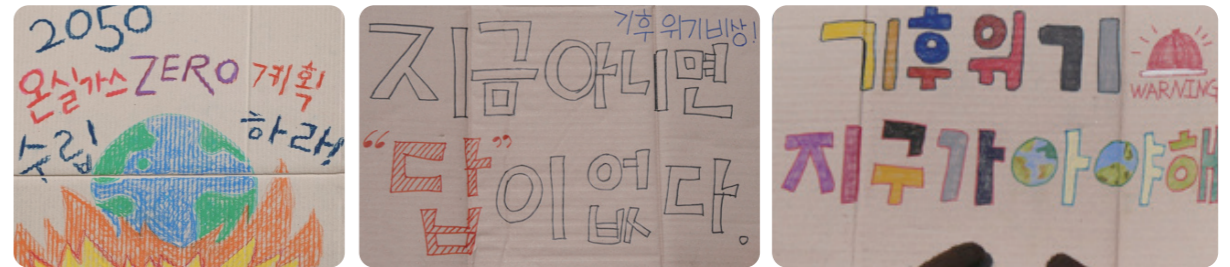 2050
온실가스 ZERO 계획
수립 하라!
기후 위기비상!
지금아니면
“답”이 없다.
기후위기
WARNING
지구가아야해